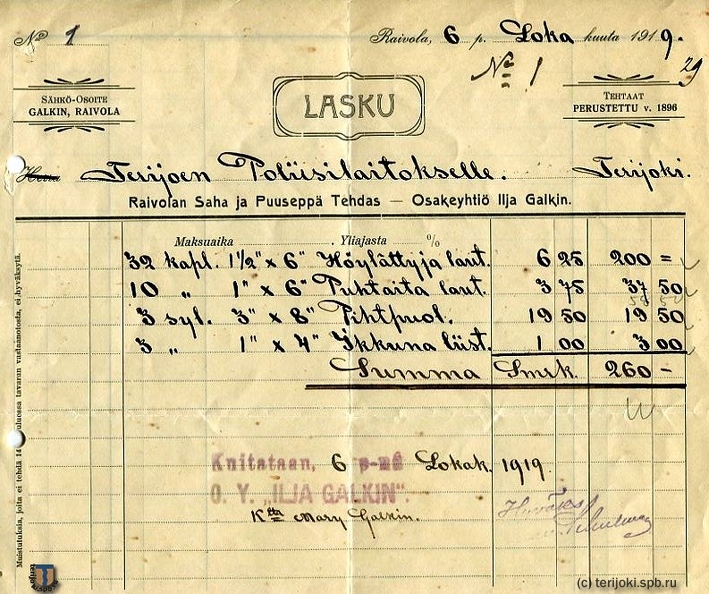 No 1
Raivola, 6 p. Loka kuuta 1919.
No 1
29
SÄHKÖ-OSOITE
GALKIN, RAIVOLA
LASKU
TEHTAAT
PERUSTETTU v. 1896
Herra Terijoen Poliisilaitokselle. Terijoki.
Raivolan Saha ja Puuseppä Tehdas — Osakeyhtiö Ilja Galkin.
Maksuaika Yliajasta %
32 kapl. 1½" x 6" Höylättyjä laut. 6 25 200 =
10 „ 1" x 6" Puhtaita laut. 3 75 37 50
3 syl. 3" x 8" Pihtpuol. 19 50 19 50
3 „ 1" x 4" Ikkuna liist. 1 00 3 00
Summa Smrk. 260 –
Kuitataan, 6 p-nä Lokak. 1919.
O. Y. „ILJA GALKIN".
Ktta Mary Galkin.
Muistutuksia, joita ei tehdä 14 kuluessa tavaran vastaanotosta, ei hyväksytä.
(c) terijoki.spb.ru